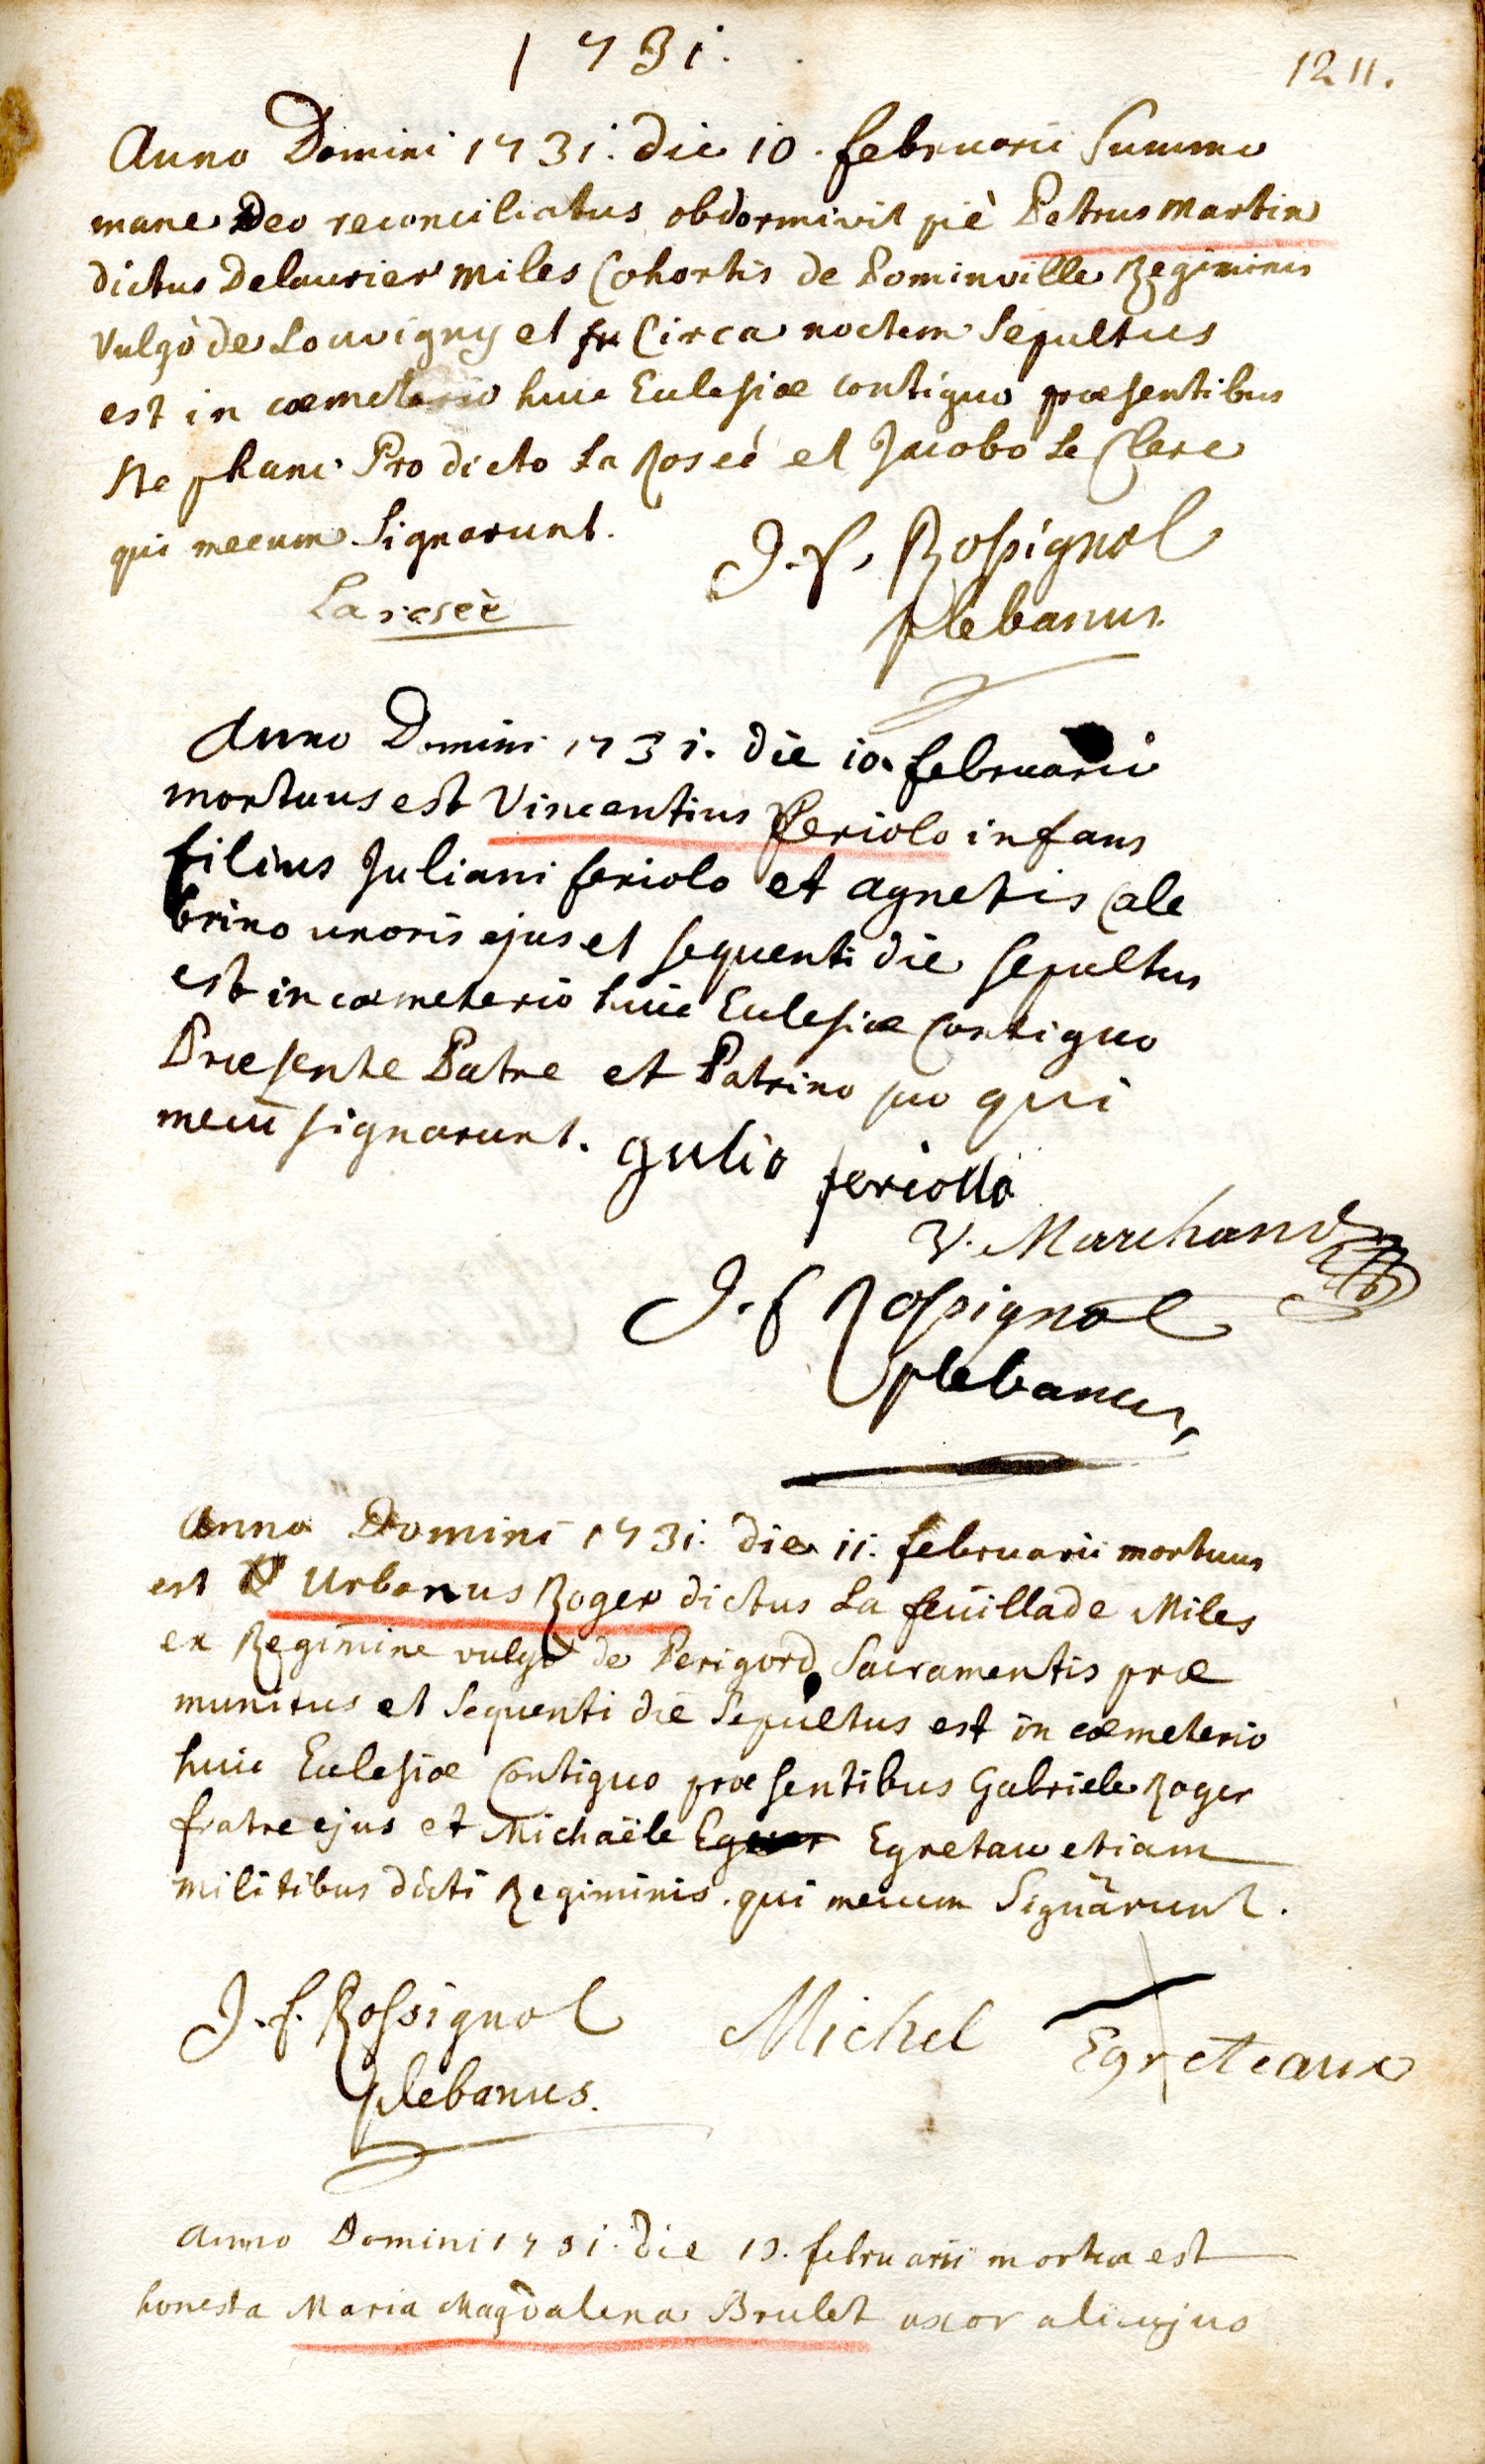 1731.
1211.
Anno Domini 1731. die 10. februarii Summo
mane Deo reconciliatus obdormivit piè Petrus Martin
dictus Delaurier Miles Cohortis de Pominville Regiminis
vulgò de Louvigny et Circa noctem Sepultus
est in coemeterio huic Ecclesiæ contiguo præsentibus
Stephano Pro dicto La Roseé et Jacobo Le Clerc
qui mecum Signarunt.
J. F. Rossignol
Laroseè
plebanus.
Anno Domini 1731. die 10. februarii
mortuus est Vincentius Feriolo infans
filius Juliani feriolo et agnetis Cale
brino uxoris ejus et sequenti die sepultus
est in coemeterio huic Ecclesiæ Contiguo
Præsente Patre et Patrino suo qui
mecū signarunt. gulio feriollo
V. Marchand
J. f Rossignol
plebanus,
Anno Domini 1731. die 11. februarii mortuus
est Urbanus Roger dictus La feüillade Miles
ex Regimine vulgò de Perigord Sacramentis præ
munitus et Sequenti die Sepultus est in coemeterio
huic Ecclesiæ Contiguo præsentibus Gabriele Roger
fratre ejus et Michaële Egretau etiam
militibus dicti Regiminis. qui mecum Signârunt.
J. f. Rossignol Michel Egreteaux
plebanus.
Anno Domini 1731. die 13. februarii mortua est
honesta Maria Magdalena Brulet uxor alicujus